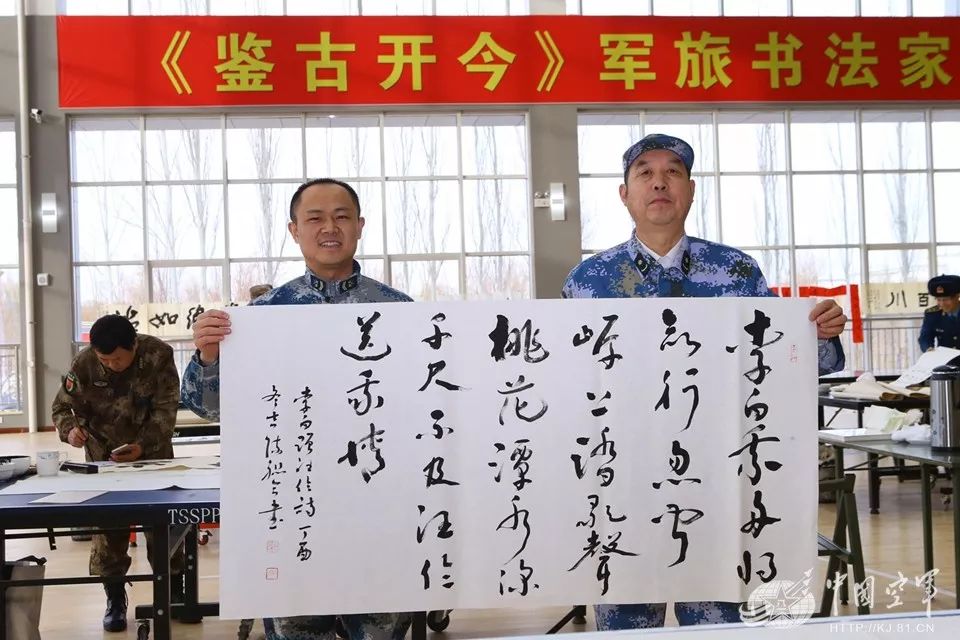 《鉴古开今》军旅书法家
李白乘舟将
欲行忽闻
岸上踏歌聲
桃花潭水深
千尺不及汪伦
送我情
李白赠汪伦诗丁酉
TSSPP
百川
中国空军
HTTP://KJ.81.CN